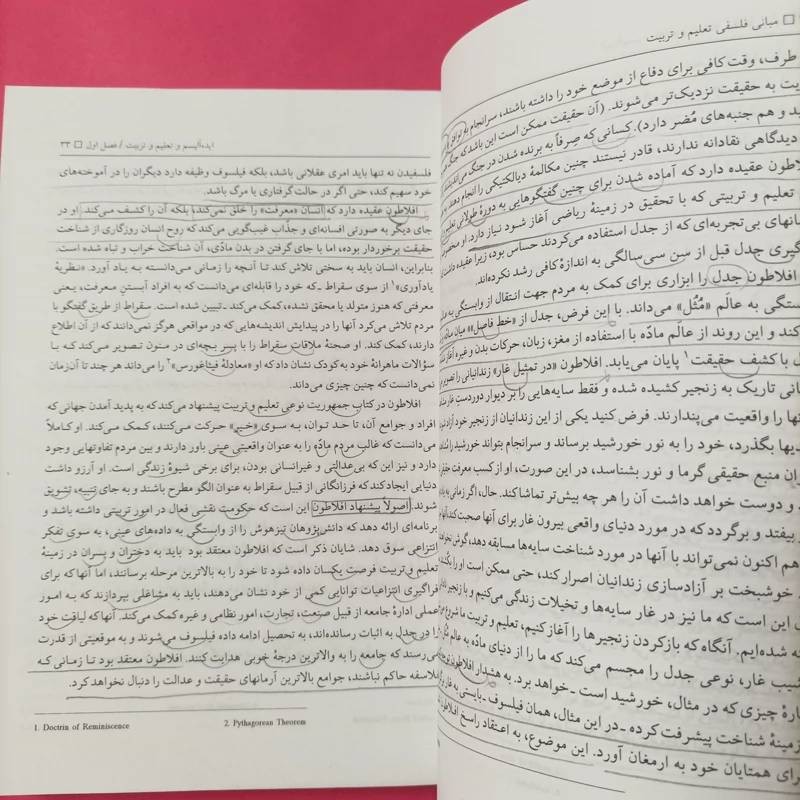 □ مبانی فلسفی تعلیم و تربیت
طرف، وقت کافی برای دفاع از موضع خود را داشته باشند، سرانجام به توافق
به حقیقت نزدیک‌تر می‌شوند. (آن حقیقت ممکن است این باشد که جنگ هم
و هم جنبه‌های مُضر دارد). کسانی که صِرفاً به برنده شدن در جنگ می‌اندیشند
دیدگاهی نقادانه ندارند، قادر نیستند چنین مکالمهٔ دیالکتیکی را انجام دهند.
عقیده دارد که آماده شدن برای چنین گفتگوهایی به دورهٔ طولانی تعلیم
تعلیم و تربیتی که با تحقیق در زمینهٔ ریاضی آغاز شود نیاز دارد. او
بی‌تجربه‌ای که از جدل استفاده می‌کردند حساس بود، زیرا عقیده داشت
جدل قبل از سن سی‌سالگی به اندازهٔ کافی رشد نکرده‌اند.
افلاطون جدل را ابزاری برای کمک به مردم جهت انتقال از وابستگی به
به عالَم «مُثُل» می‌داند. با این فرض، جدل از «خط فاصل» میان ماده
و این روند از عالَم مادّه با استفاده از مغز، زبان، حرکات بدن و غیره آغاز
با کشف حقیقت۱ پایان می‌یابد. افلاطون «در تمثیل غار» زندانیانی را تصویر
تاریک به زنجیر کشیده شده و فقط سایه‌هایی را بر دیوار دوردستِ غار
را واقعیت می‌پندارند. فرض کنید یکی از این زندانیان از زنجیر خود آزاد
بگذرد، خود را به نور خورشید برساند و سرانجام بتواند خورشید را
منبع حقیقی گرما و نور بشناسد، در این صورت، او از کسب معرفت
و دوست خواهد داشت آن را هر چه بیش‌تر تماشا کند. حال، اگر
بیفتد و برگردد که در مورد دنیای واقعی بیرون غار برای آنها صحبت کند،
هم اکنون نمی‌تواند با آنها در مورد شناخت سایه‌ها مسابقه دهد، گوش
خوشبخت بر آزادسازی زندانیان اصرار کند، حتی ممکن است او را بکُشند.
این است که ما نیز در غار سایه‌ها و تخیلات زندگی می‌کنیم و با زنجیر
شده‌ایم. آنگاه که بازکردن زنجیرها را آغاز کنیم، تعلیم و تربیت ما شروع
شیب غار، نوعی جدل را مجسم می‌کند که ما را از دنیای مادّه به عالم
چیزی که در مثال، خورشید است ـ خواهد برد. به هشدار افلاطون
زمینهٔ شناخت پیشرفت کرده ـ در این مثال، همان فیلسوف ـ بایستی به غار
برای همتایان خود به ارمغان آورد. این موضوع، به اعتقاد راسخ افلاطون
ایده‌آلیسم و تعلیم و تربیت / فصل اول □ ۳۳
فلسفیدن نه تنها باید امری عقلانی باشد، بلکه فیلسوف وظیفه دارد دیگران را در آموخته‌های
خود سهیم کند، حتی اگر در حالت گرفتاری یا مرگ باشد.
افلاطون عقیده دارد که انسان «معرفت» را خلق نمی‌کند، بلکه آن را کشف می‌کند. او در
جای دیگر به صورتی افسانه‌ای و جذّاب غیب‌گویی می‌کند که روح انسان روزگاری از شناخت
حقیقت برخوردار بوده، اما با جای گرفتن در بدن مادّی، آن شناخت خراب و تباه شده است.
بنابراین، انسان باید به سختی تلاش کند تا آنچه را زمانی می‌دانسته به یاد آورد. «نظریهٔ
یادآوری»۱ از سوی سقراط ـ که خود را قابله‌ای می‌دانست که به افراد آبستنِ معرفت، یعنی
معرفتی که هنوز متولد یا محقق نشده، کمک می‌کند ـ تبیین شده است. سقراط از طریق گفتگو با
مردم تلاش می‌کرد آنها را در پیدایش اندیشه‌هایی که در مواقعی هرگز نمی‌دانند که از آن اطلاع
دارند، کمک کند. او صحنهٔ ملاقات سقراط را با پسر بچه‌ای در منون تصویر می‌کند که با
سؤالات ماهرانهٔ خود به کودک نشان داد که او «معادلهٔ فیثاغورس»۲ را می‌داند هر چند تا آن‌زمان
نمی‌دانست که چنین چیزی می‌داند.
افلاطون در کتاب جمهوریت نوعی تعلیم و تربیت پیشنهاد می‌کند که به پدید آمدن جهانی که
افراد و جوامع آن، تا حد توان، به سوی «خیر» حرکت می‌کنند، کمک می‌کند. او کاملاً
می‌دانست که غالب مردم مادّه را به عنوان واقعیتی عینی باور دارند و بین مردم تفاوتهایی وجود
دارد و نیز این که بی‌عدالتی و غیرانسانی بودن، برای برخی شیوهٔ زندگی است. او آرزو داشت
دنیایی ایجاد کند که فرزانگانی از قبیل سقراط به عنوان الگو مطرح باشند و به جای تنبیه، تشویق
شوند. اصولاً پیشنهاد افلاطون این است که حکومت نقشی فعال در امور تربیتی داشته باشد و
برنامه‌ای ارائه دهد که دانش‌پژوهان تیزهوش را از وابستگی به داده‌های عینی، به سوی تفکر
انتزاعی سوق دهد. شایان ذکر است که افلاطون معتقد بود باید به دختران و پسران در زمینهٔ
تعلیم و تربیت فرصت یکسان داده شود تا خود را به بالاترین مرحله برسانند، اما آنها که برای
فراگیری انتزاعیات توانایی کمی از خود نشان می‌دهند، باید به مشاغلی بپردازند که به امور
عملی ادارهٔ جامعه از قبیل صنعت، تجارت، امور نظامی و غیره کمک می‌کند. آنها که لیاقت خود
را در جدل به اثبات رسانده‌اند، به تحصیل ادامه داده فیلسوف می‌شوند و به موقعیتی از قدرت
می‌رسند که جامعه را به والاترین درجهٔ خوبی هدایت کنند. افلاطون معتقد بود تا زمانی که
فلاسفه حاکم نباشند، جوامع بالاترین آرمانهای حقیقت و عدالت را دنبال نخواهد کرد.
1. Doctrin of Reminiscence 2. Pythagorean Theorem